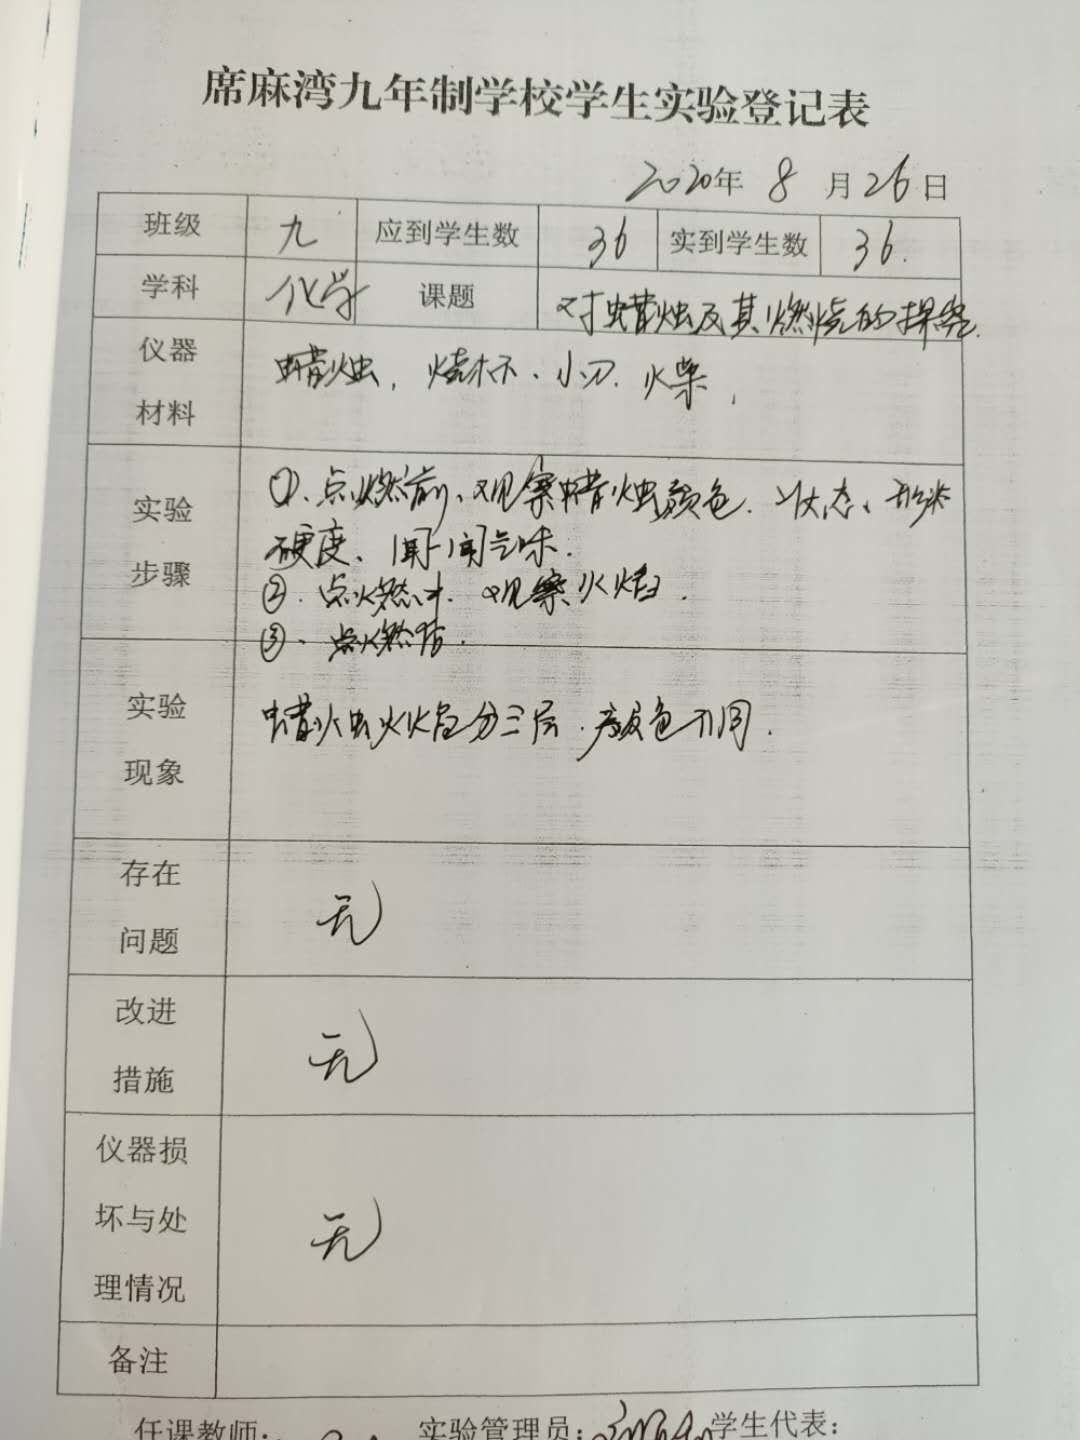 席麻湾九年制学校学生实验登记表
2020年 8 月 26 日
班级 九 应到学生数 36 实到学生数 36.
学科 化学 课题 对蜡烛及其燃烧的探究.
仪器 蜡烛, 烧杯、小刀. 火柴,
材料
①、点燃前、观察蜡烛颜色. 状态、形状
实验 硬度、闻一闻气味.
步骤 ②、点燃时. 观察火焰.
③、点燃后.
实验 蜡烛火焰分三层. 颜色不同.
现象
存在 无
问题
改进 无
措施
仪器损
坏与处 无
理情况
备注
任课教师: 实验管理员: 学生代表: